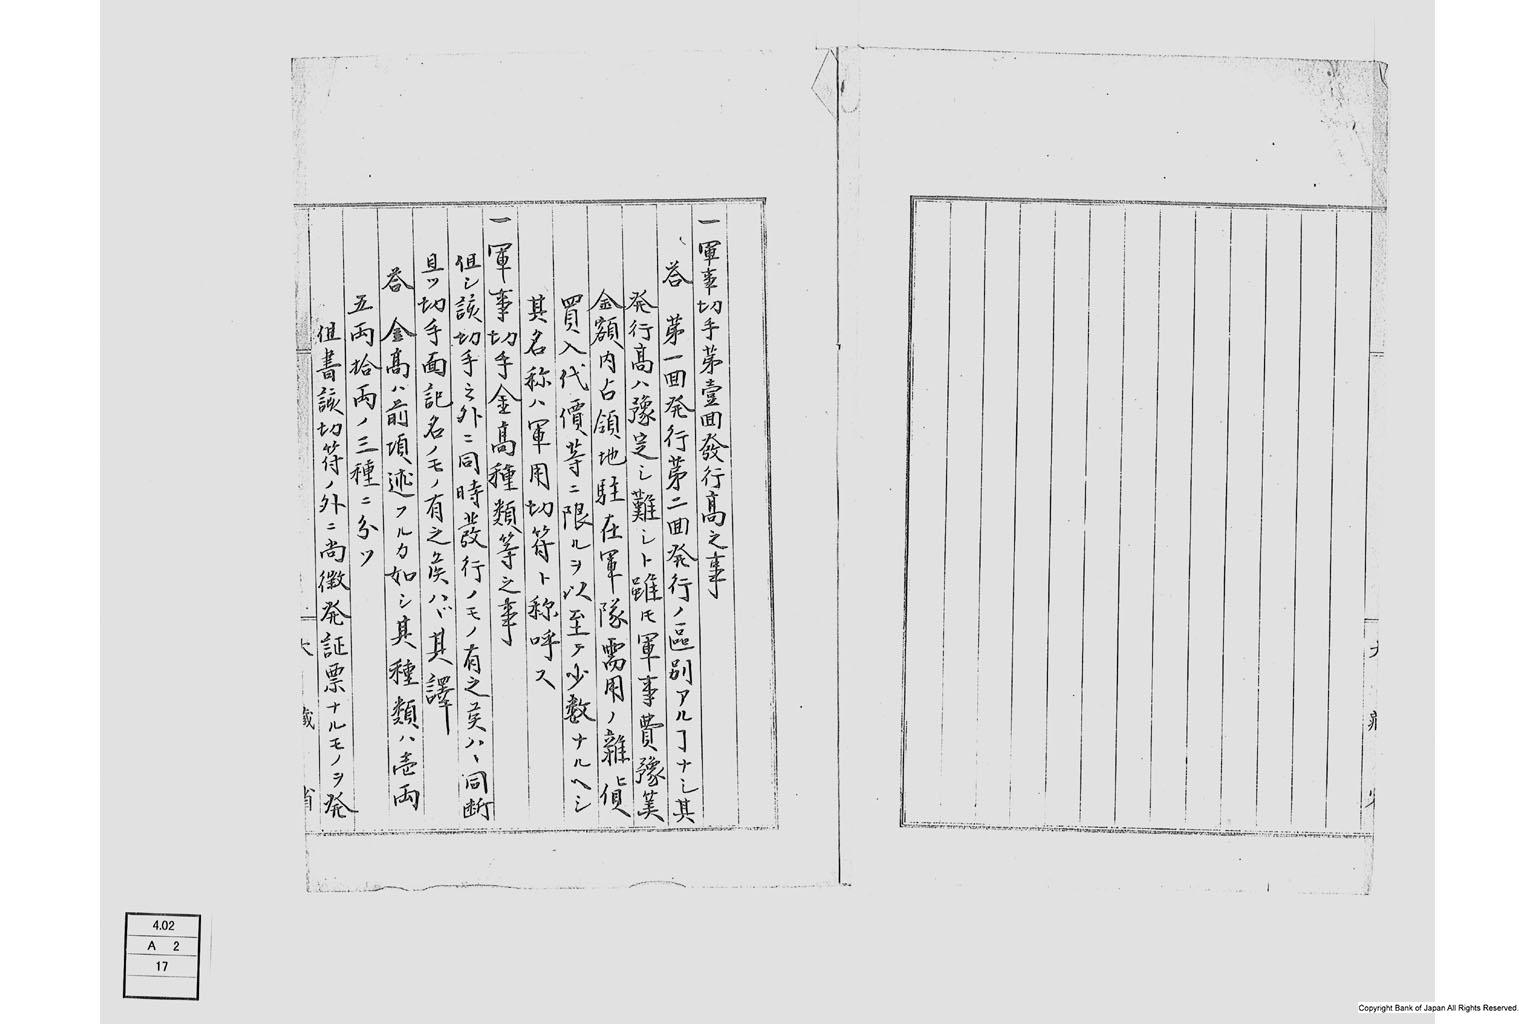 大藏省
一軍事切手第壹回發行高之事
答 第一回発行第二回発行ノ區別アルヿナシ其
発行高ハ豫定シ難シト雖モ軍事費豫筭
金額内占領地駐在軍隊需用ノ雜品
買入代價等ニ限ルヲ以至テ少数ナルヘシ
其名称ハ軍用切符ト称呼ス
一軍事切手金高種類等之事
但シ該切手之外ニ同時發行ノモノ有之候ハヽ同断
且ツ切手面記名ノモノ有之候ハヾ其譯
答 金高ハ前項述フルカ如シ其種類ハ壱両
五両拾両ノ三種ニ分ツ
但書該切符ノ外ニ尚徴発証票ナルモノヲ発
大藏省
4.02
A 2
17
Copyright Bank of Japan All Rights Reserved.